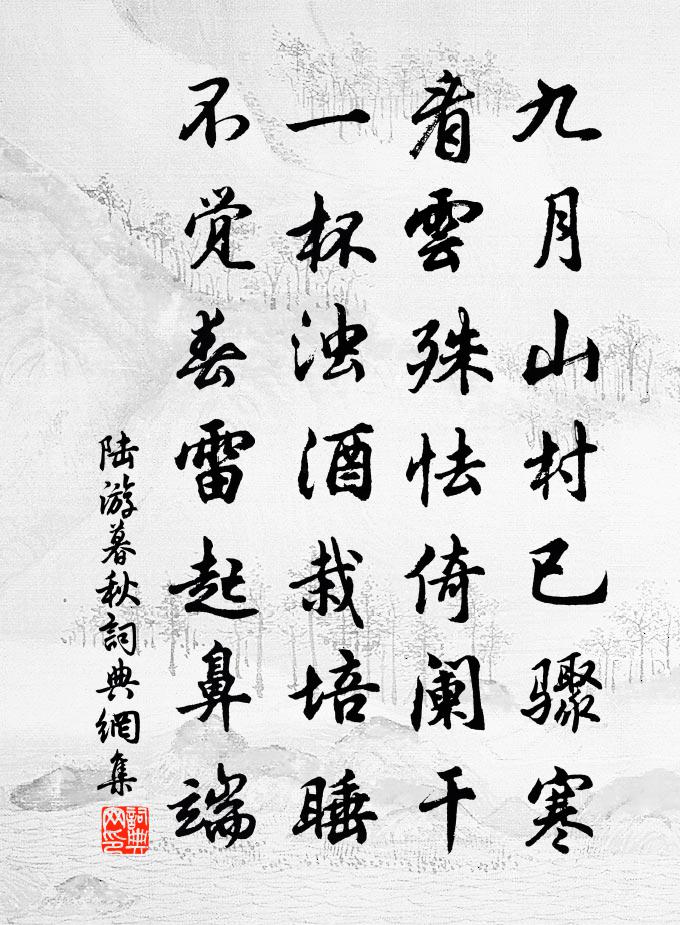 九月山村已驟寒
看雲殊怯倚阑干
一杯浊酒栽培睡
不觉春雷起鼻端
陆游暮秋詞典網集
詞典网印